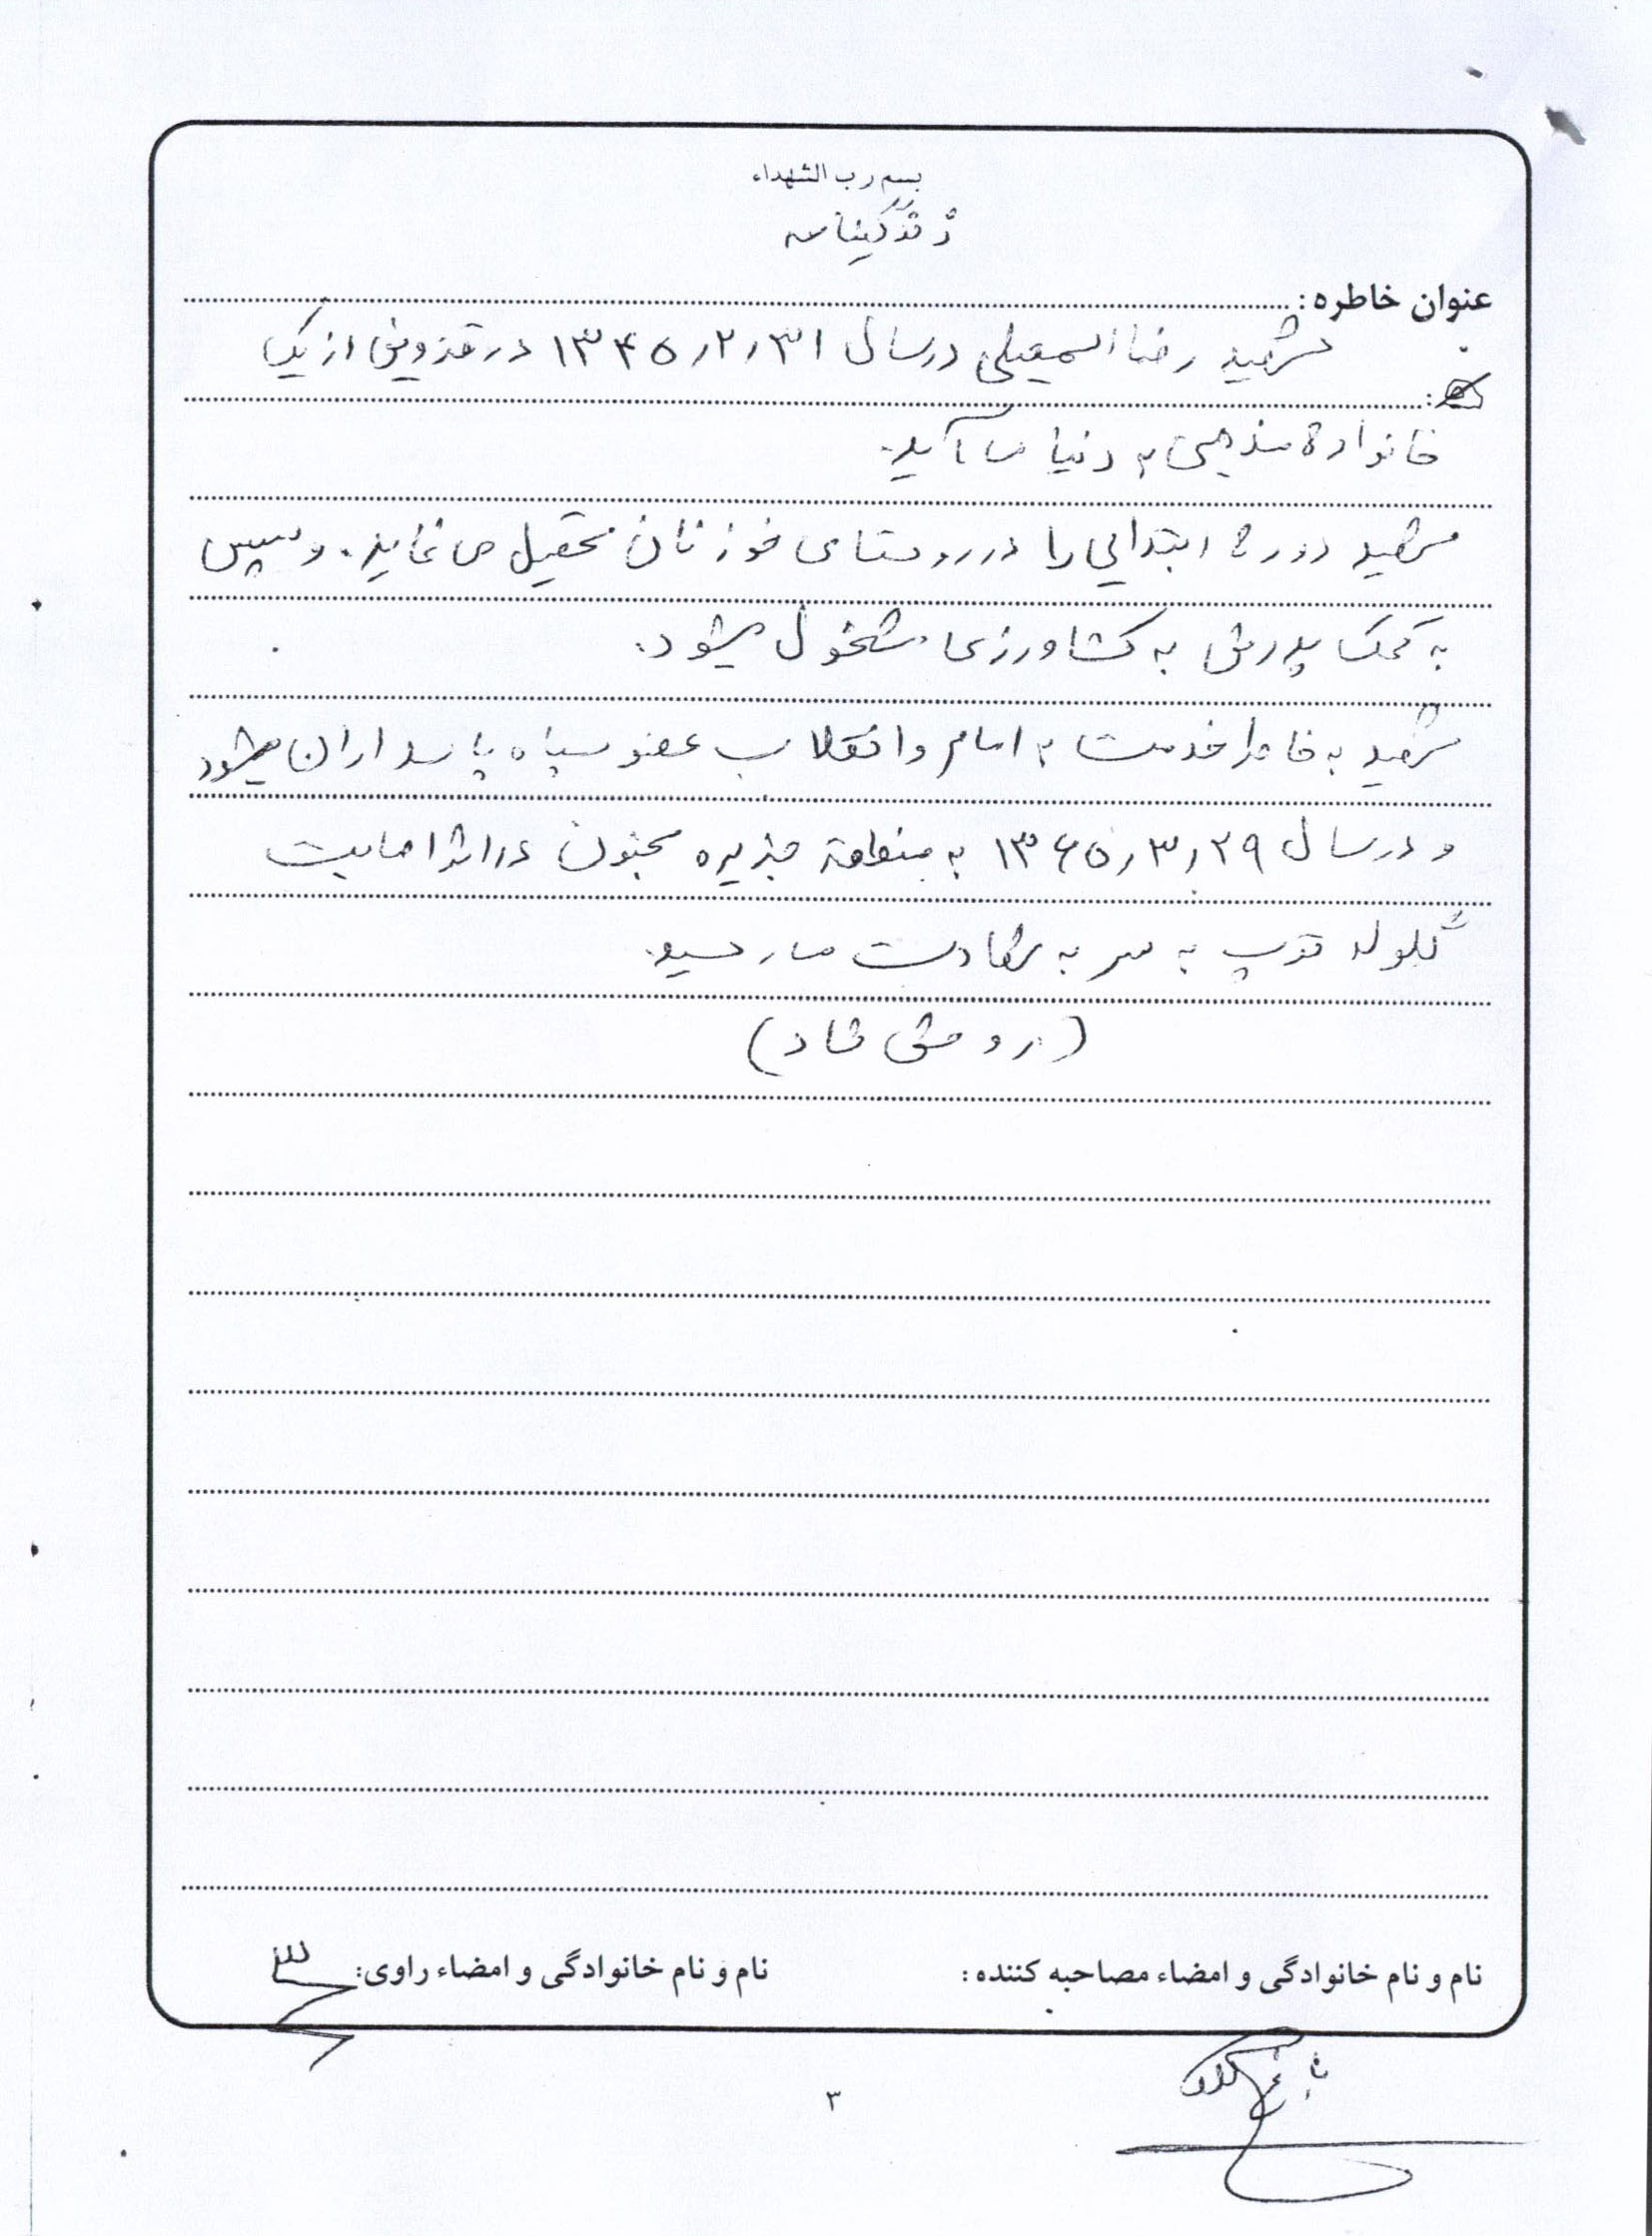 بسم رب الشهداء
زندگینامه
عنوان خاطره:
شهید رضا اسمعیلی در سال ۱۳۴۵٫۲٫۳۱ در قزوین از یک
خانواده مذهبی به دنیا می آید.
شهید دوره ابتدایی را در روستای خوزنان تحصیل می نماید. و سپس
به کمک پدرش به کشاورزی مشغول میشود.
شهید به خاطر خدمت به امام و انقلاب عضو سپاه پاسداران میشود
و در سال ۱۳۶۵٫۳٫۲۹ به منطقه جزیره مجنون در اثر اصابت
گلوله توپ به سر به شهادت می رسید.
(روحش شاد)
نام و نام خانوادگی و امضاء مصاحبه کننده:
نام و نام خانوادگی و امضاء راوی:
۳